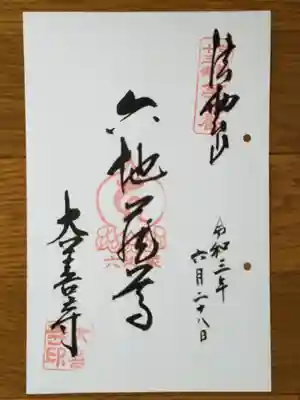 法雨山
令和三年
六月二十八日
六地蔵尊
大善寺